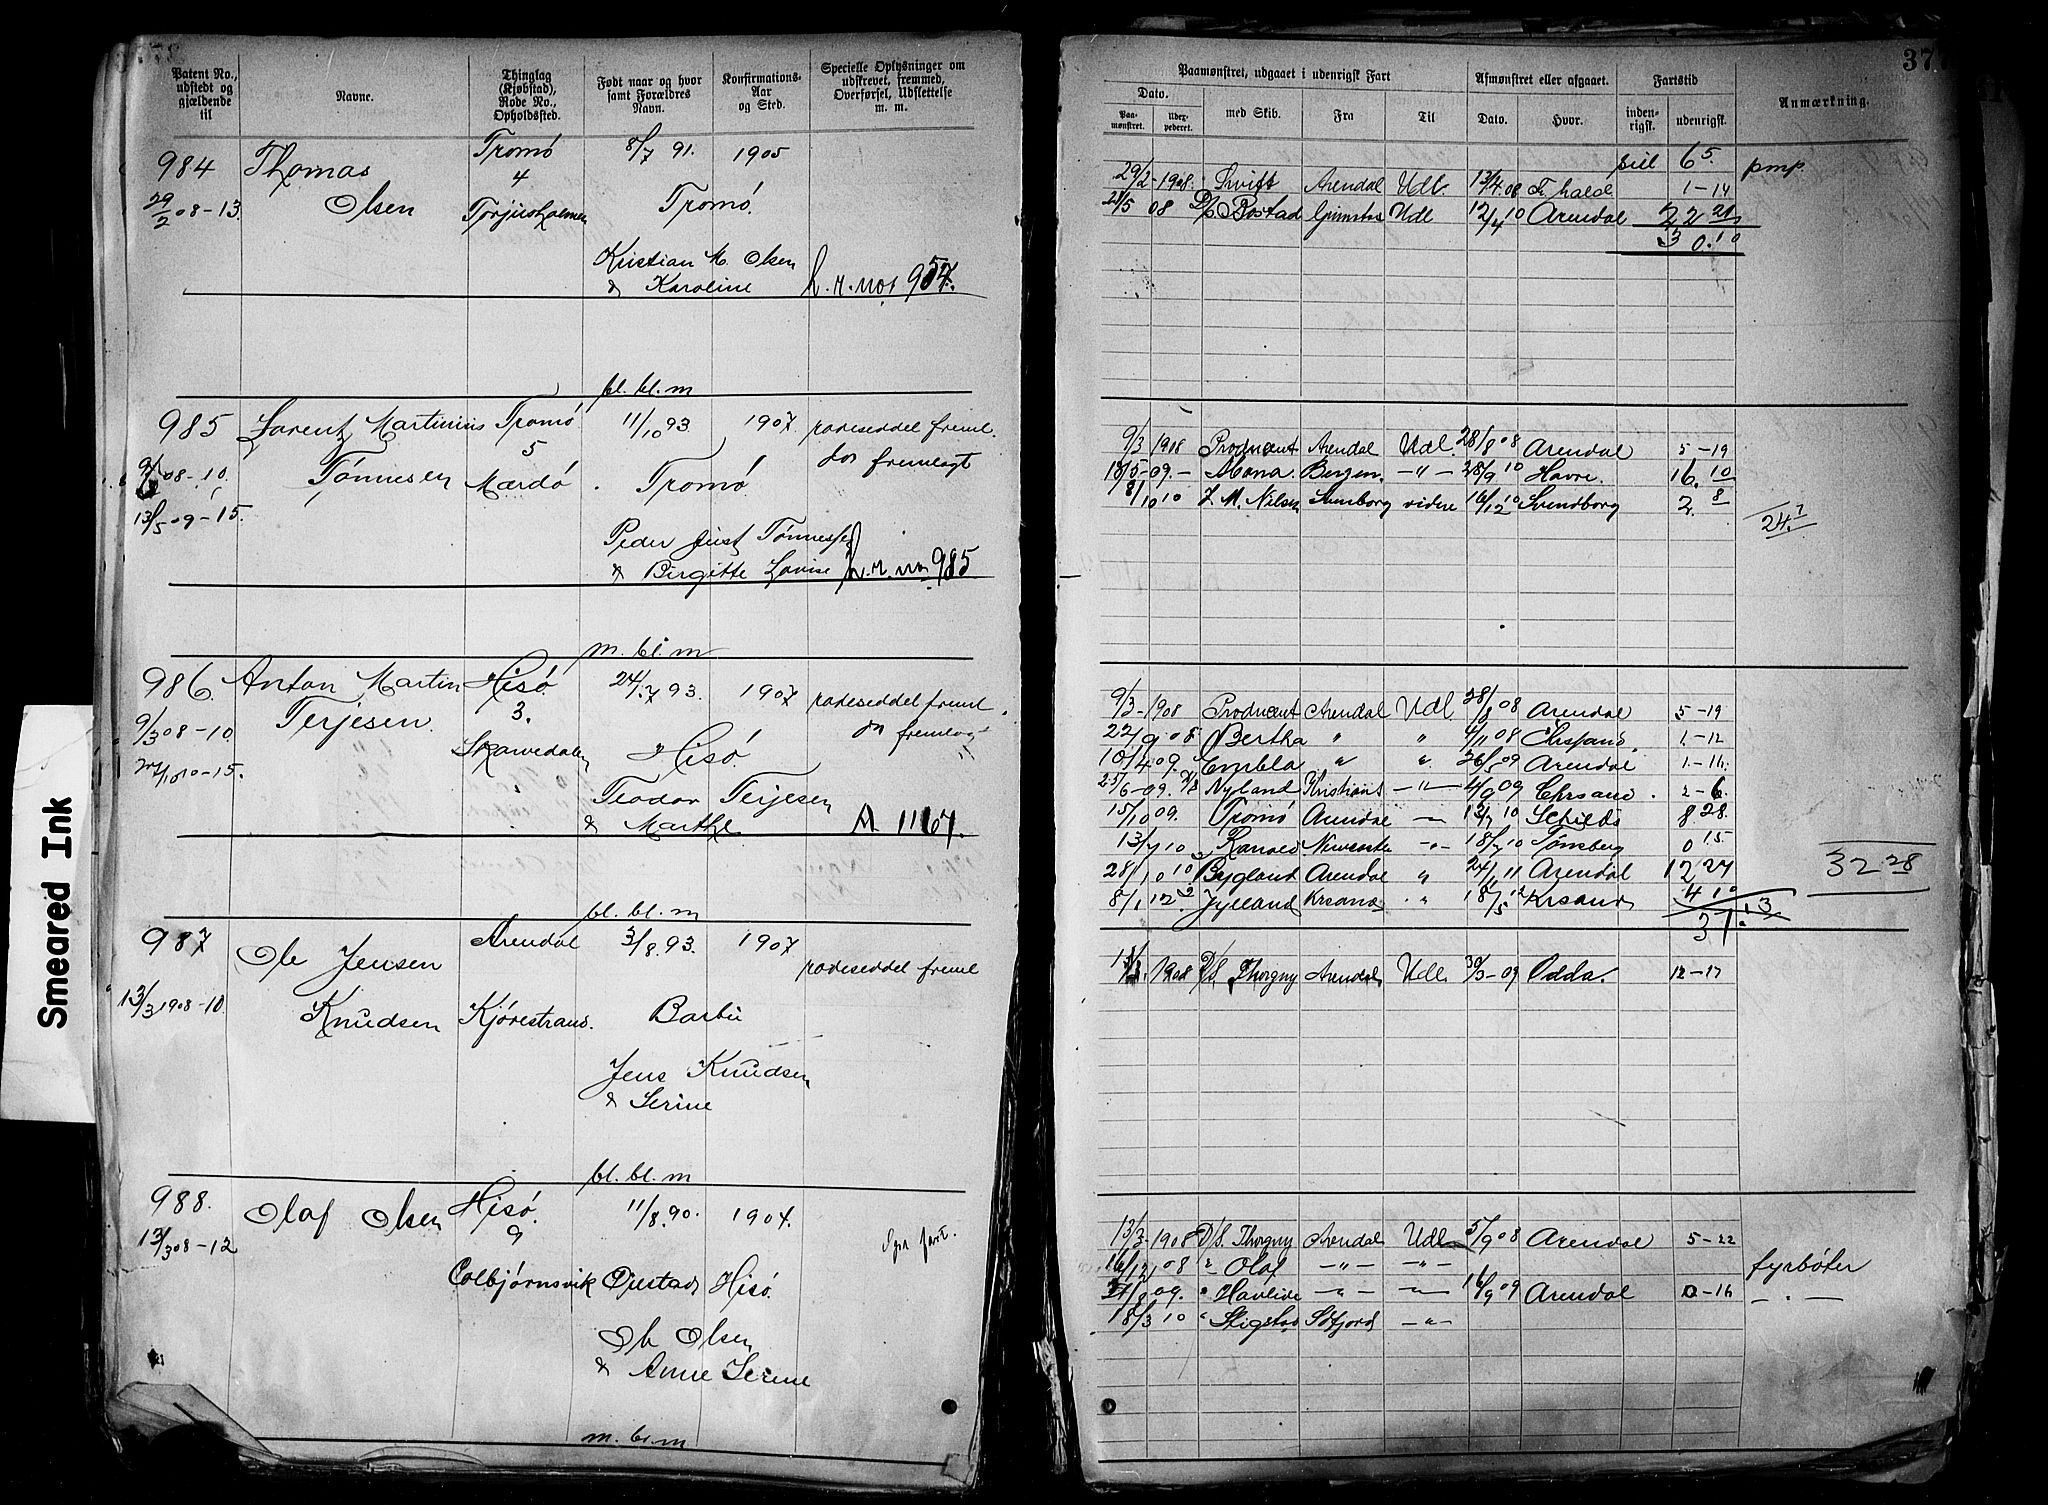 Smeared Ink
Patent No., udstedt og gjældende til
Navne.
Thinglag (Kjøbstad), Rode No., Opholdssted.
Født naar og hvor samt Forældres Navn.
Konfirmations-Aar og Sted.
Specielle Oplysninger om udskrevet, fremmed, Overførsel, Udslettelse m. m.
984 Thomas Tromø 8/7 91. 1905
29/2 08-13. Olsen 4 Tromø.
Kristian M. Olsen
& Karoline
h. r. no 954.
bl. bl. m
985 Lorentz Martinius Tromø 11/10 93 1907. rodeseddel freml.
5
9/3 08-10. Tønnesen Mærdø. Tromø. fremlagt
13/5 09-15.
Peder Just Tønnessen
& Birgitte Lovise h. r. no 985
m. bl. m
986. Anton Martin Hisø 24/7 93. 1907 rodeseddel freml.
9/3 08-10. Terjesen. 3. fremlagt
Hisø.
Teodor Terjesen
& Marthe A 1167.
bl. bl. m
987 Ole Jensen Arendal 3/8 93. 1907 rodeseddel freml
13/3 1908-10. Knudsen Barbu
Jens Knudsen
& Serine
bl. bl. m
988. Olaf Olsen Hisø. 11/8 90. 1904.
9
13/3 08-12
Colbjørnsvik Hisø.
Ole Olsen
& Anne Serine
m. bl. m
377
Paamønstret, udgaaet i udenrigsk Fart
Afmønstret eller afgaaet.
Fartstid
Anmærkning.
Dato.
Paamønstret. Udexpederet. med Skib. Fra Til Dato. Hvor. indenrigsk. udenrigsk.
6 5. pmp.
29/2-1908. Swift Arendal Udl. 13/4 08 Fr.hald 1-14
21/5 08 Rostad Udl 12/4 10 Arendal 22 21
30.10
9/3 1908 Producent Arendal Udl. 28/8 08 Arendal 5-19
13/5-09.- Mona. Bergen. -"- 28/9 10 Havre. 16.10
8/10 10 J. M. Nilsen videre 16/12 10 Svendborg 2. 8
24.7
9/3-1908 Producent Arendal Udl. 28/8 08 Arendal 5-19
22/9 08 Bertha " " 4/11 08 1-12
10/4 09. Embla " " 26/5 09 Arendal 1-16.
25/6-09. D/S Nyland -"- 4/9 09 Chrsand. 2-6
15/10 09. Tromø Arendal 8.28
13/7 10 Ranald -"- 18/7 10 Tønsberg 0 15
28/10 10 Bygland Arendal " 24/11 11 Arendal 12 27
8/1 12 Jylland " 18/5 12 4 10
32 28
31.
1908 D/S. Thorgny Arendal Udl. 30/3-09 Odda. 12-17
13/3 1908 D/S. Thorgny Arendal Udl. 5/9 08 Arendal 5-22
16/12 08 " Olaf -"- -"- fyrbøter
" Havlide -"- 16/9 09 Arendal 0-16 -"-
18/3 10 " Stigstad -"-